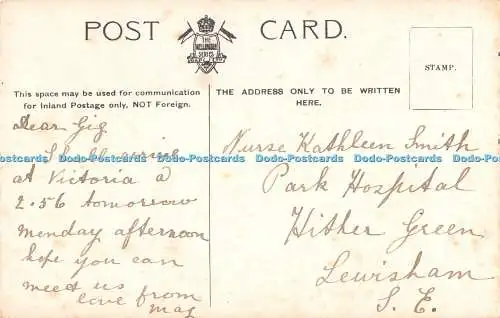 POST CARD.
THE
WELLINGTON
SERIES
STAMP.
This space may be used for communication
for Inland Postage only, NOT Foreign.
THE ADDRESS ONLY TO BE WRITTEN
HERE.
Dear Gig
Shall arrive
at Victoria a
2.56 tomorrow
Monday afternoon
hope you can
meet us
love from
Mag
Nurse Kathleen Smith
Park Hospital
Hither Green
Lewisham
S. E.
Dodo-Postcards Dodo-Postcards Dodo-Postcards Dodo-Postcards Dodo-Postcards Dodo-Postcards